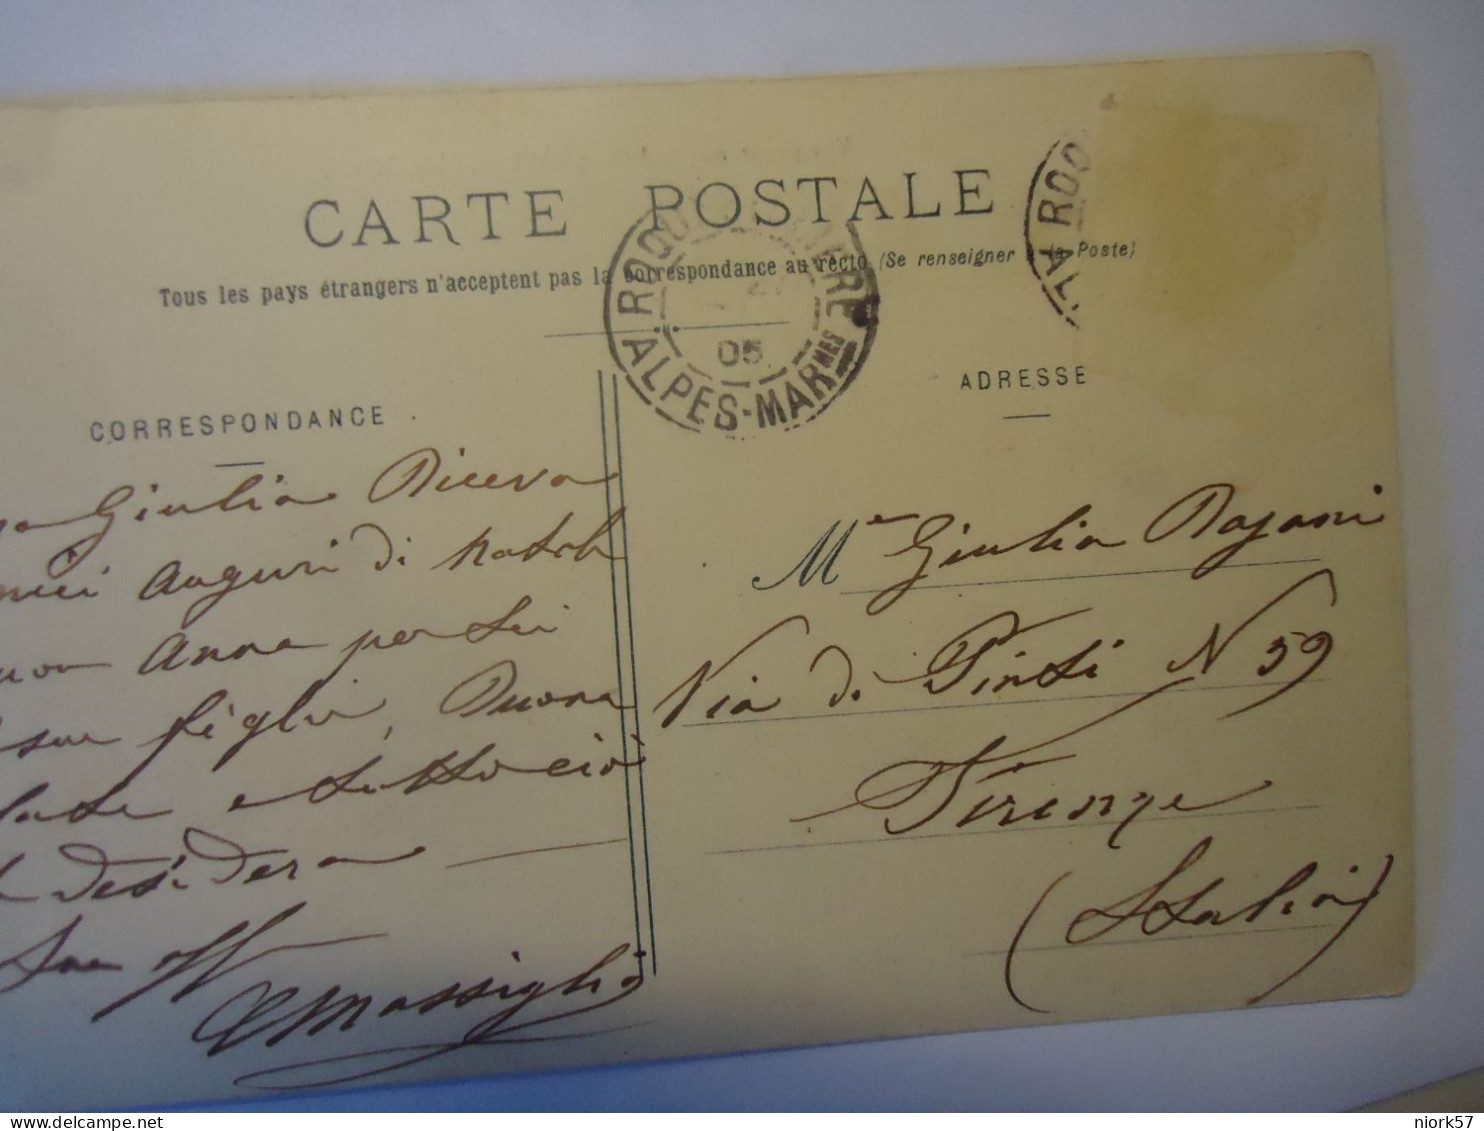 CARTE POSTALE
Tous les pays étrangers n'acceptent pas la correspondance au recto (Se renseigner à la Poste)
ROQU LIÈRE
05
ALPES-MARNES
ROQ
AL
CORRESPONDANCE
ADRESSE
Giulia Riceva
miei Auguri di Natale
Anna per Lei
sue figlie, Buona
e tutto ciò
desidera
Sua
Massiglia
Me Giulia Pagani
Via di Pinti N 59
Firenze
(Italia)
niork57